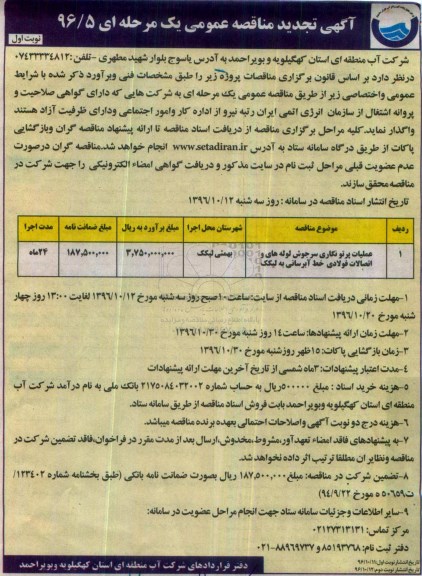 آگهی تجدید مناقصه عمومی یک مرحله ای ۹۶/۵
نوبت اول
شرکت آب منطقه ای استان کهگیلویه و بویراحمد به آدرس یاسوج بلوار شهید مطهری -تلفن:۰۷۴۳۳۳۴۸۱۲
درنظر دارد بر اساس قانون برگزاری مناقصات پروژه زیر را طبق مشخصات فنی وبرآورد ذکر شده با شرایط
عمومی واختصاصی زیر از طریق مناقصه عمومی یک مرحله ای به شرکت هایی که دارای گواهی صلاحیت و
پروانه اشتغال از سازمان انرژی اتمی ایران رتبه نیرو از اداره کار وامور اجتماعی ودارای ظرفیت آزاد هستند
واگذار نماید.کلیه مراحل برگزاری مناقصه از دریافت اسناد مناقصه تا ارائه پیشنهاد مناقصه گران وبازگشایی
پاکات از طریق درگاه سامانه ستاد به آدرس www.setadiran.ir انجام خواهد شد.مناقصه گران درصورت
عدم عضویت قبلی مراحل ثبت نام در سایت مذکور و دریافت گواهی امضاء الکترونیکی را جهت شرکت در
مناقصه محقق سازند.
تاریخ انتشار اسناد مناقصه در سامانه : روز سه شنبه ۱۳۹۶/۱۰/۱۲
ردیف موضوع مناقصه شهرستان محل اجرا مبلغ برآورد به ریال مبلغ ضمانت نامه مدت اجرا
۱ عملیات پرتو نگاری سرجوش لوله های و بهمئی لیکک ۳,۷۵۰,۰۰۰,۰۰۰ ۱۸۷,۵۰۰,۰۰۰ ۲۴ماه
اتصالات فولادی خط آبرسانی به لیکک
۱-مهلت زمانی دریافت اسناد مناقصه از سایت:ساعت۱۰صبح روز سه شنبه مورخ ۱۳۹۶/۱۰/۱۲ لغایت ۱۳:۰۰ روز چهار
شنبه مورخ ۱۳۹۶/۱۰/۲۰
۲-مهلت زمان ارائه پیشنهادها: ساعت۱۴ روز شنبه مورخ ۱۳۹۶/۱۰/۳۰
۳-زمان بازگشایی پاکات: ۱۵ظهر روزشنبه مورخ ۱۳۹۶/۱۰/۳۰
۴-مدت اعتبار پیشنهادات:۳ماه شمسی از تاریخ آخرین مهلت ارائه پیشنهادات
۵-هزینه خرید اسناد : مبلغ ۵۰۰۰۰۰ریال به حساب شماره ۲۱۷۵۰۸۴۰۳۲۰۰۲ بانک ملی به نام درآمد شرکت آب
منطقه ای استان کهگیلویه وبویراحمد بابت فروش اسناد مناقصه از طریق سامانه ستاد.
۶-هزینه درج دو نوبت آگهی واصلاحات احتمالی بعهده برنده مناقصه میباشد.
۷-به پیشنهادهای فاقد امضاء تعهدآور،مشروط،مخدوش،ارسال بعد از مدت مقرر در فراخوان،فاقد تضمین شرکت در
مناقصه ونظایر ان مطلقا ترتیب اثر داده نخواهد شد.
۸-تضمین شرکت در مناقصه: مبلغ۱۸۷,۵۰۰,۰۰۰ ریال بصورت ضمانت نامه بانکی (طبق بخشنامه شماره ۱۲۳۴۰۲/
ت۵۰۶۵۹ه مورخ ۹۴/۹/۲۲)
۹-سایر اطلاعات وجزئیات سامانه ستاد جهت انجام مراحل عضویت در سامانه:
مرکز تماس: ۰۲۱۲۷۳۱۳۱۳۱
دفتر ثبت نام: ۸۵۱۹۳۷۶۸و۸۸۹۶۹۷۳۷-۰۲۱
تاریخ انتشار نوبت اول:۹۶/۱۰/۱۱
تاریخ انتشار نوبت دوم:۹۶/۱۰/۱۲
دفتر قراردادهای شرکت آب منطقه ای استان کهگیلویه وبویراحمد